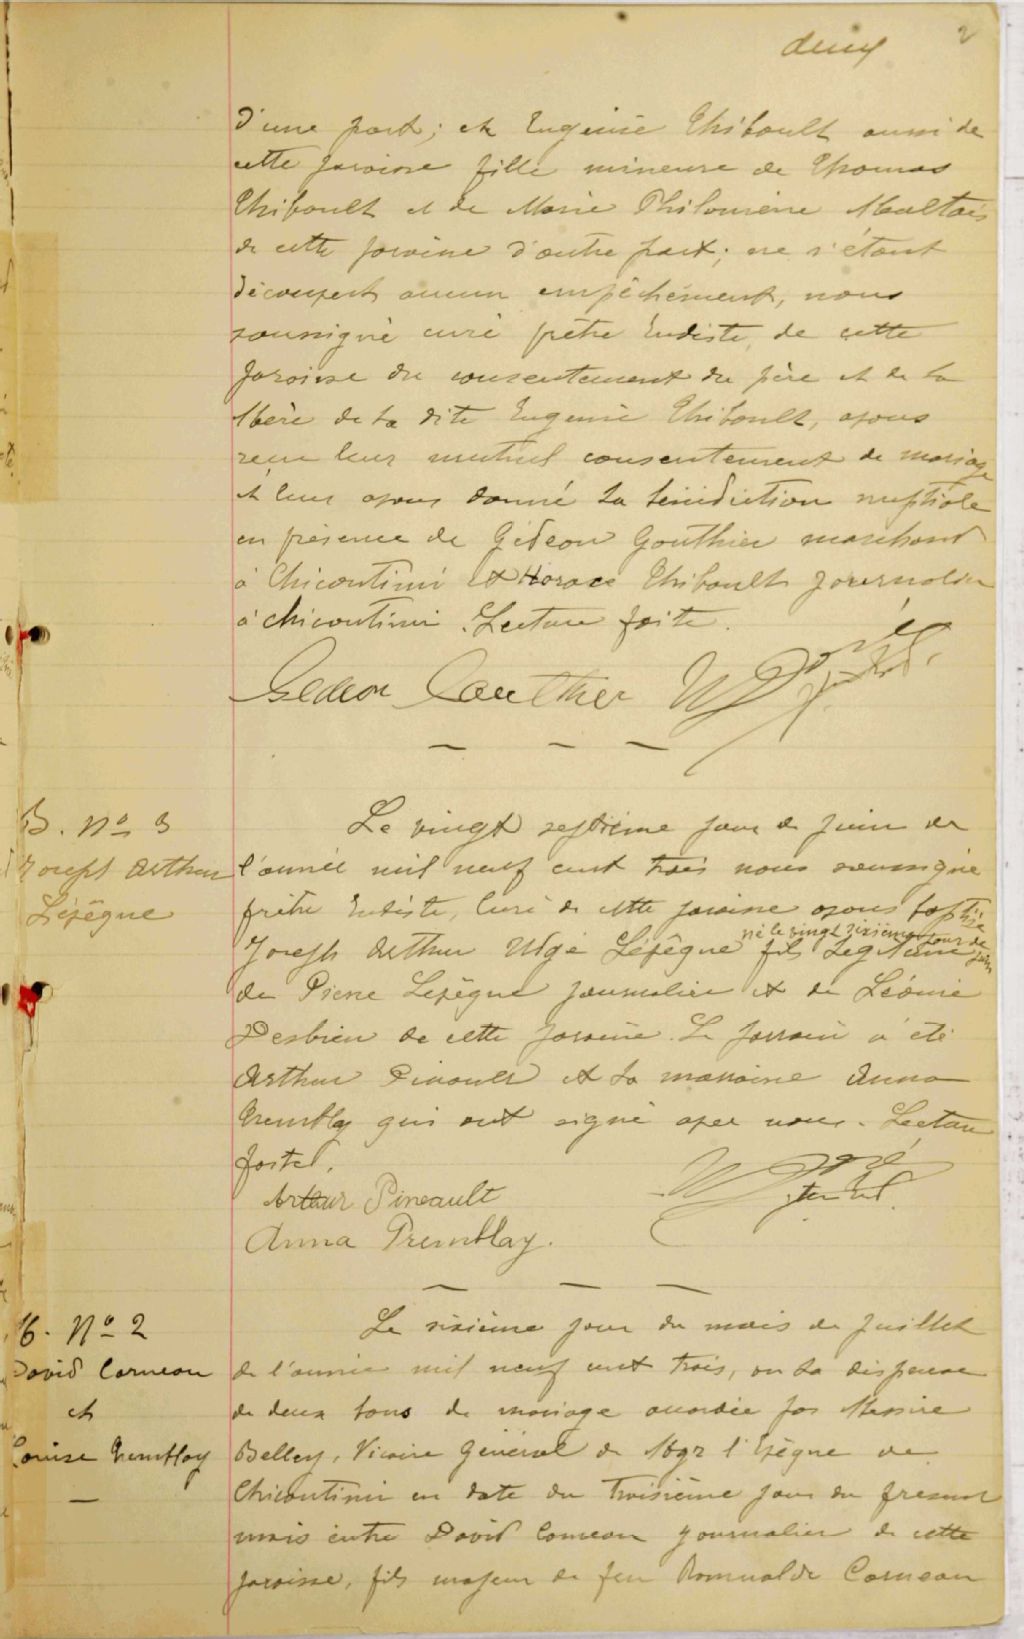 deux
2
d'une part; et Eugénie Thibault aussi de
cette paroisse fille mineure de Thomas
Thibault et de Marie Philomène Maltais
de cette paroisse d'autre part; ne s'étant
découvert aucun empêchement, nous
soussigné curé prêtre Eudiste, de cette
paroisse du consentement du père et de la
Mère de la dite Eugénie Thibault, avons
reçu leur mutuel consentement de mariage
et leur avons donné la bénédiction nuptiale
en présence de Gédeon Gauthier marchand
à Chicoutimi et Horace Thibault journalier
à Chicoutimi. Lecture faite.
Gedeon Gauthier
B. No 3
Joseph Arthur
Lévêque
Le vingt septième jour de juin de
l'année mil neuf cent trois nous soussigné
prêtre Eudiste, Curé de cette paroisse avons baptisé
né le vingt sixième jour de juin
Joseph Arthur Lévêque fils légitime
de Pierre Levêque journalier et de Léonie
Desbien de cette paroisse. Le parrain a été
Arthur Pineault et la marraine Anna
Tremblay qui ont signé avec nous. Lecture
faite.
Arthur Pineault
Anna Tremblay.
M. No 2
David Corneau
et
Louise Tremblay
Le sixième jour du mois de Juillet
de l'année mil neuf cent trois, vu la dispense
de deux bans de mariage accordée par Messire
Belley, Vicaire Général de Mgr l'Evêque de
Chicoutimi en date du troisième jour du présent
mois entre David Corneau journalier de cette
paroisse, fils majeur de feu Romualde Corneau